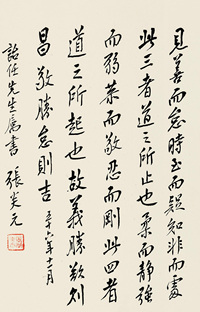 見善而怠時至而疑知非而處
此三者道之所止也柔而靜強
而弱恭而敬忍而剛此四者
道之所起也故義勝欺則
昌敬勝怠則吉 五十六年十一月
詒任先生屬書 張炎元